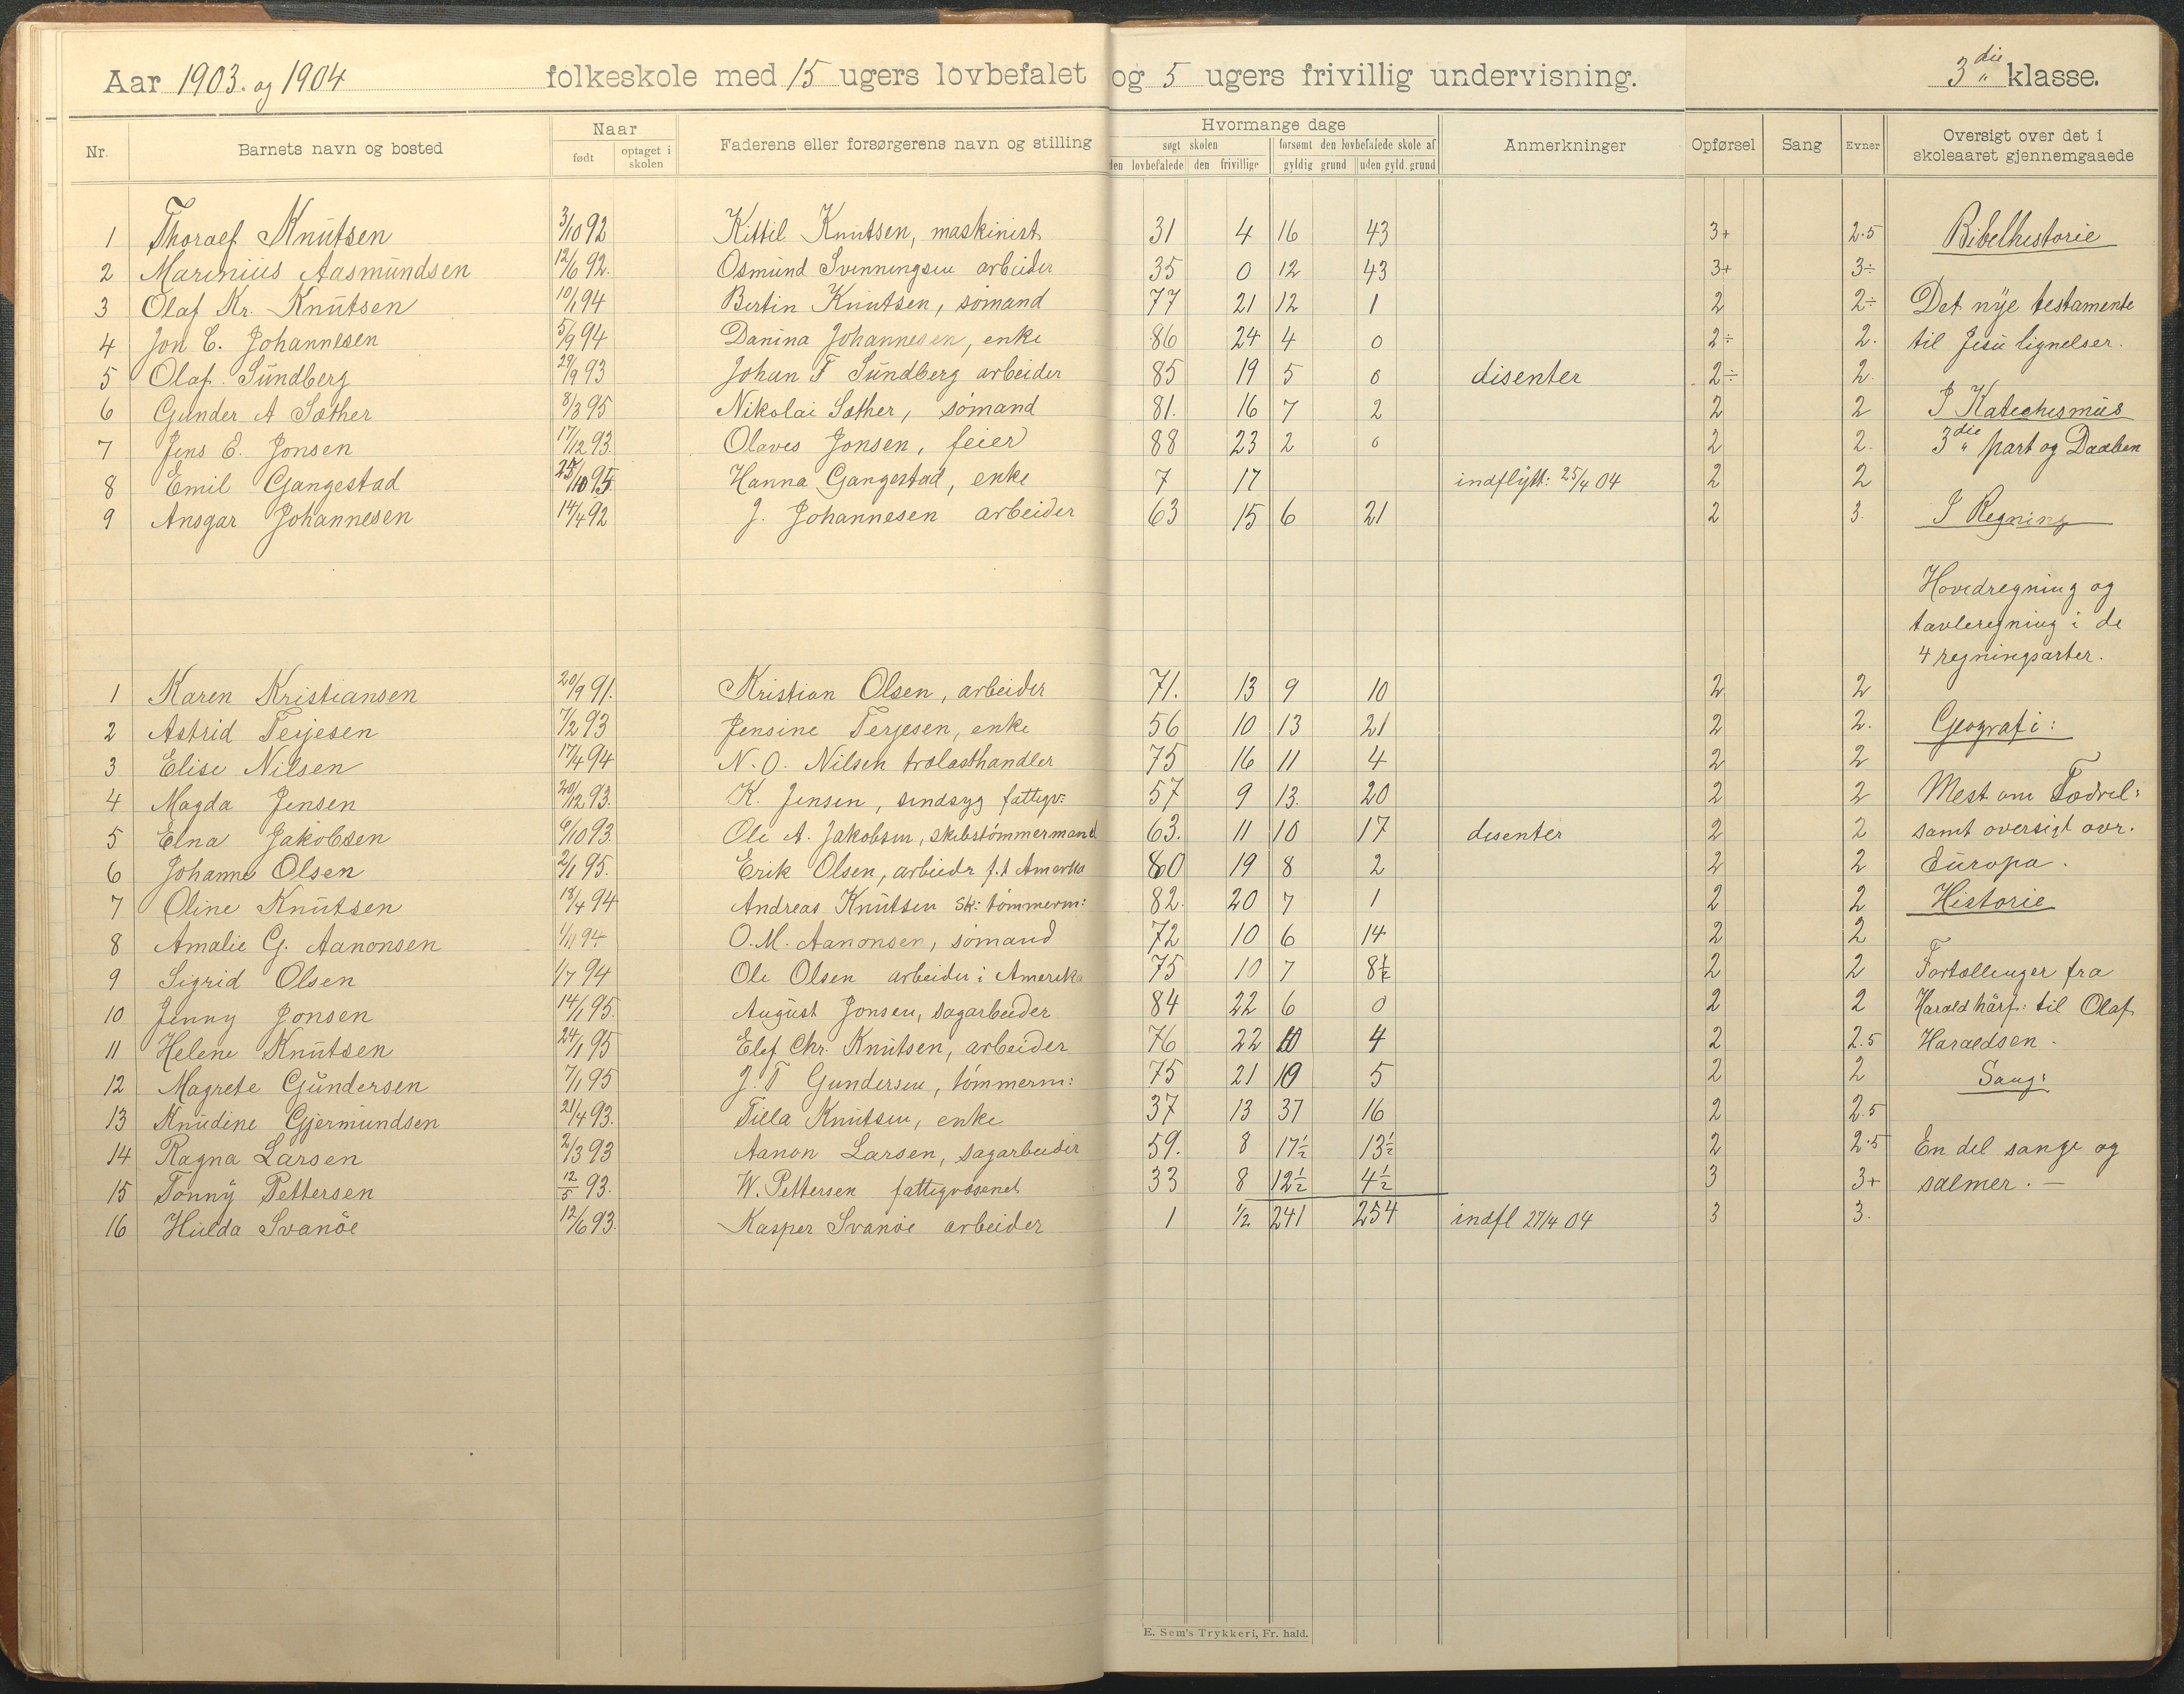 Aar 1903. og 1904 folkeskole med 15 ugers lovbefalet og 5 ugers frivillig undervisning. 3die klasse.
Nr. Barnets navn og bosted Naar født optaget i skolen Faderens eller forsørgerens navn og stilling Hvormange dage søgt skolen den lovbefalede den frivillige forsømt den lovbefalede skole af gyldig grund uden gyld. grund Anmerkninger Opførsel Sang Evner Oversigt over det i skoleaaret gjennemgaaede
1 Thoralf Knutsen 3/10 92 Kittil Knutsen, maskinist 31 4 16 43 3+ 2.5 Bibelhistorie
2 Marinius Aasmundsen 12/6 92. Osmund Svenningsen arbeider 35 0 12 43 3+ 3÷
3 Olaf Kr. Knutsen 10/1 94 Bertin Knutsen, sømand 77 21 12 1 2 2÷ Det nye testamente
4 Jon C. Johannesen 5/9 94 Danina Johannesen, enke 86 24 4 0 2÷ 2. til Jesu lignelser.
5 Olaf Sundberg 29/9 93 Johan F Sundberg arbeider 85 19 5 0 disenter 2÷ 2.
6 Gunder A Sæther 8/3 95 Nikolai Sæther, sømand 81. 16 7 2 2 2 I Katechismus
7 Jens E. Jonsen 17/12 93. Olaves Jonsen, feier 88 23 2 0 2 2. 3die part og Daaben
8 Emil Gangestad 25/10 95 Hanna Gangestad, enke 7 17 indflytt: 25/4 04 2 2
9 Ansgar Johannesen 14/4 92 J. Johannesen arbeider 63 15 6 21 2 3. I Regning
Hovedregning og
tavleregning i de
4 regningsarter.
1 Karen Kristiansen 20/9 91. Kristian Olsen, arbeider 71. 13 9 10 2 2
2 Astrid Terjesen 7/2 93 Jensine Terjesen, enke 56 10 13 21 2 2. Geografi:
3 Elise Nilsen 17/4 94 N. O. Nilsen trælasthandler 75 16 11 4 2 2
4 Magda Jensen 20/12 93. K. Jensen, sindsyg fattigv: 57 9 13. 20 2 2 Mest om Fædrel:
5 Elna Jakobsen 6/10 93. Ole A. Jakobsen, skibstømmermand 63. 11 10 17 disenter 2 2 samt oversigt ovr.
6 Johanne Olsen 2/1 95. Erik Olsen, arbieder f.t Amerika 80 19 8 2 2 2 Europa.
7 Oline Knutsen 18/4 94 Andreas Knutsen sk: tømmerm: 82. 20 7 1 2 2 Historie
8 Amalie G. Aanonsen 1/11 94. O. M. Aanonsen, sømand 72 10 6 14 2 2
9 Sigrid Olsen 1/7 94 Ole Olsen arbeider i Amerika 75 10 7 8½ 2 2 Fortællinger fra
10 Jenny Jonsen 14/1 95. August Jonsen, sagarbeider 84 22 6 0 2 2 Harald hårf: til Olaf
11 Helene Knutsen 24/1 95 Elef Chr. Knutsen, arbeider 76 22 10 4 2 2.5 Haraldsen.
12 Magrete Gundersen 7/1 95 J. T Gundersen, tømmerm: 75 21 10 5 2 2 Sang:
13 Knudine Gjermundsen 21/4 93. Tilla Knutsen, enke 37 13 37 16 2 2.5
14 Ragna Larsen 2/3 93 Aanon Larsen, sagarbeider 59. 8 17½ 13½ 2 2.5 En del sange og
15 Tonny Pettersen 12/5 93. W. Pettersen fattigvæsenet 33 8 12½ 4½ 3 3+ salmer. —
16 Hulda Svanøe 12/6 93. Kasper Svanøe arbeider 1 ½ 241 254 indfl 27/4 04 3 3.
E. Sem's Trykkeri, Fr. hald.